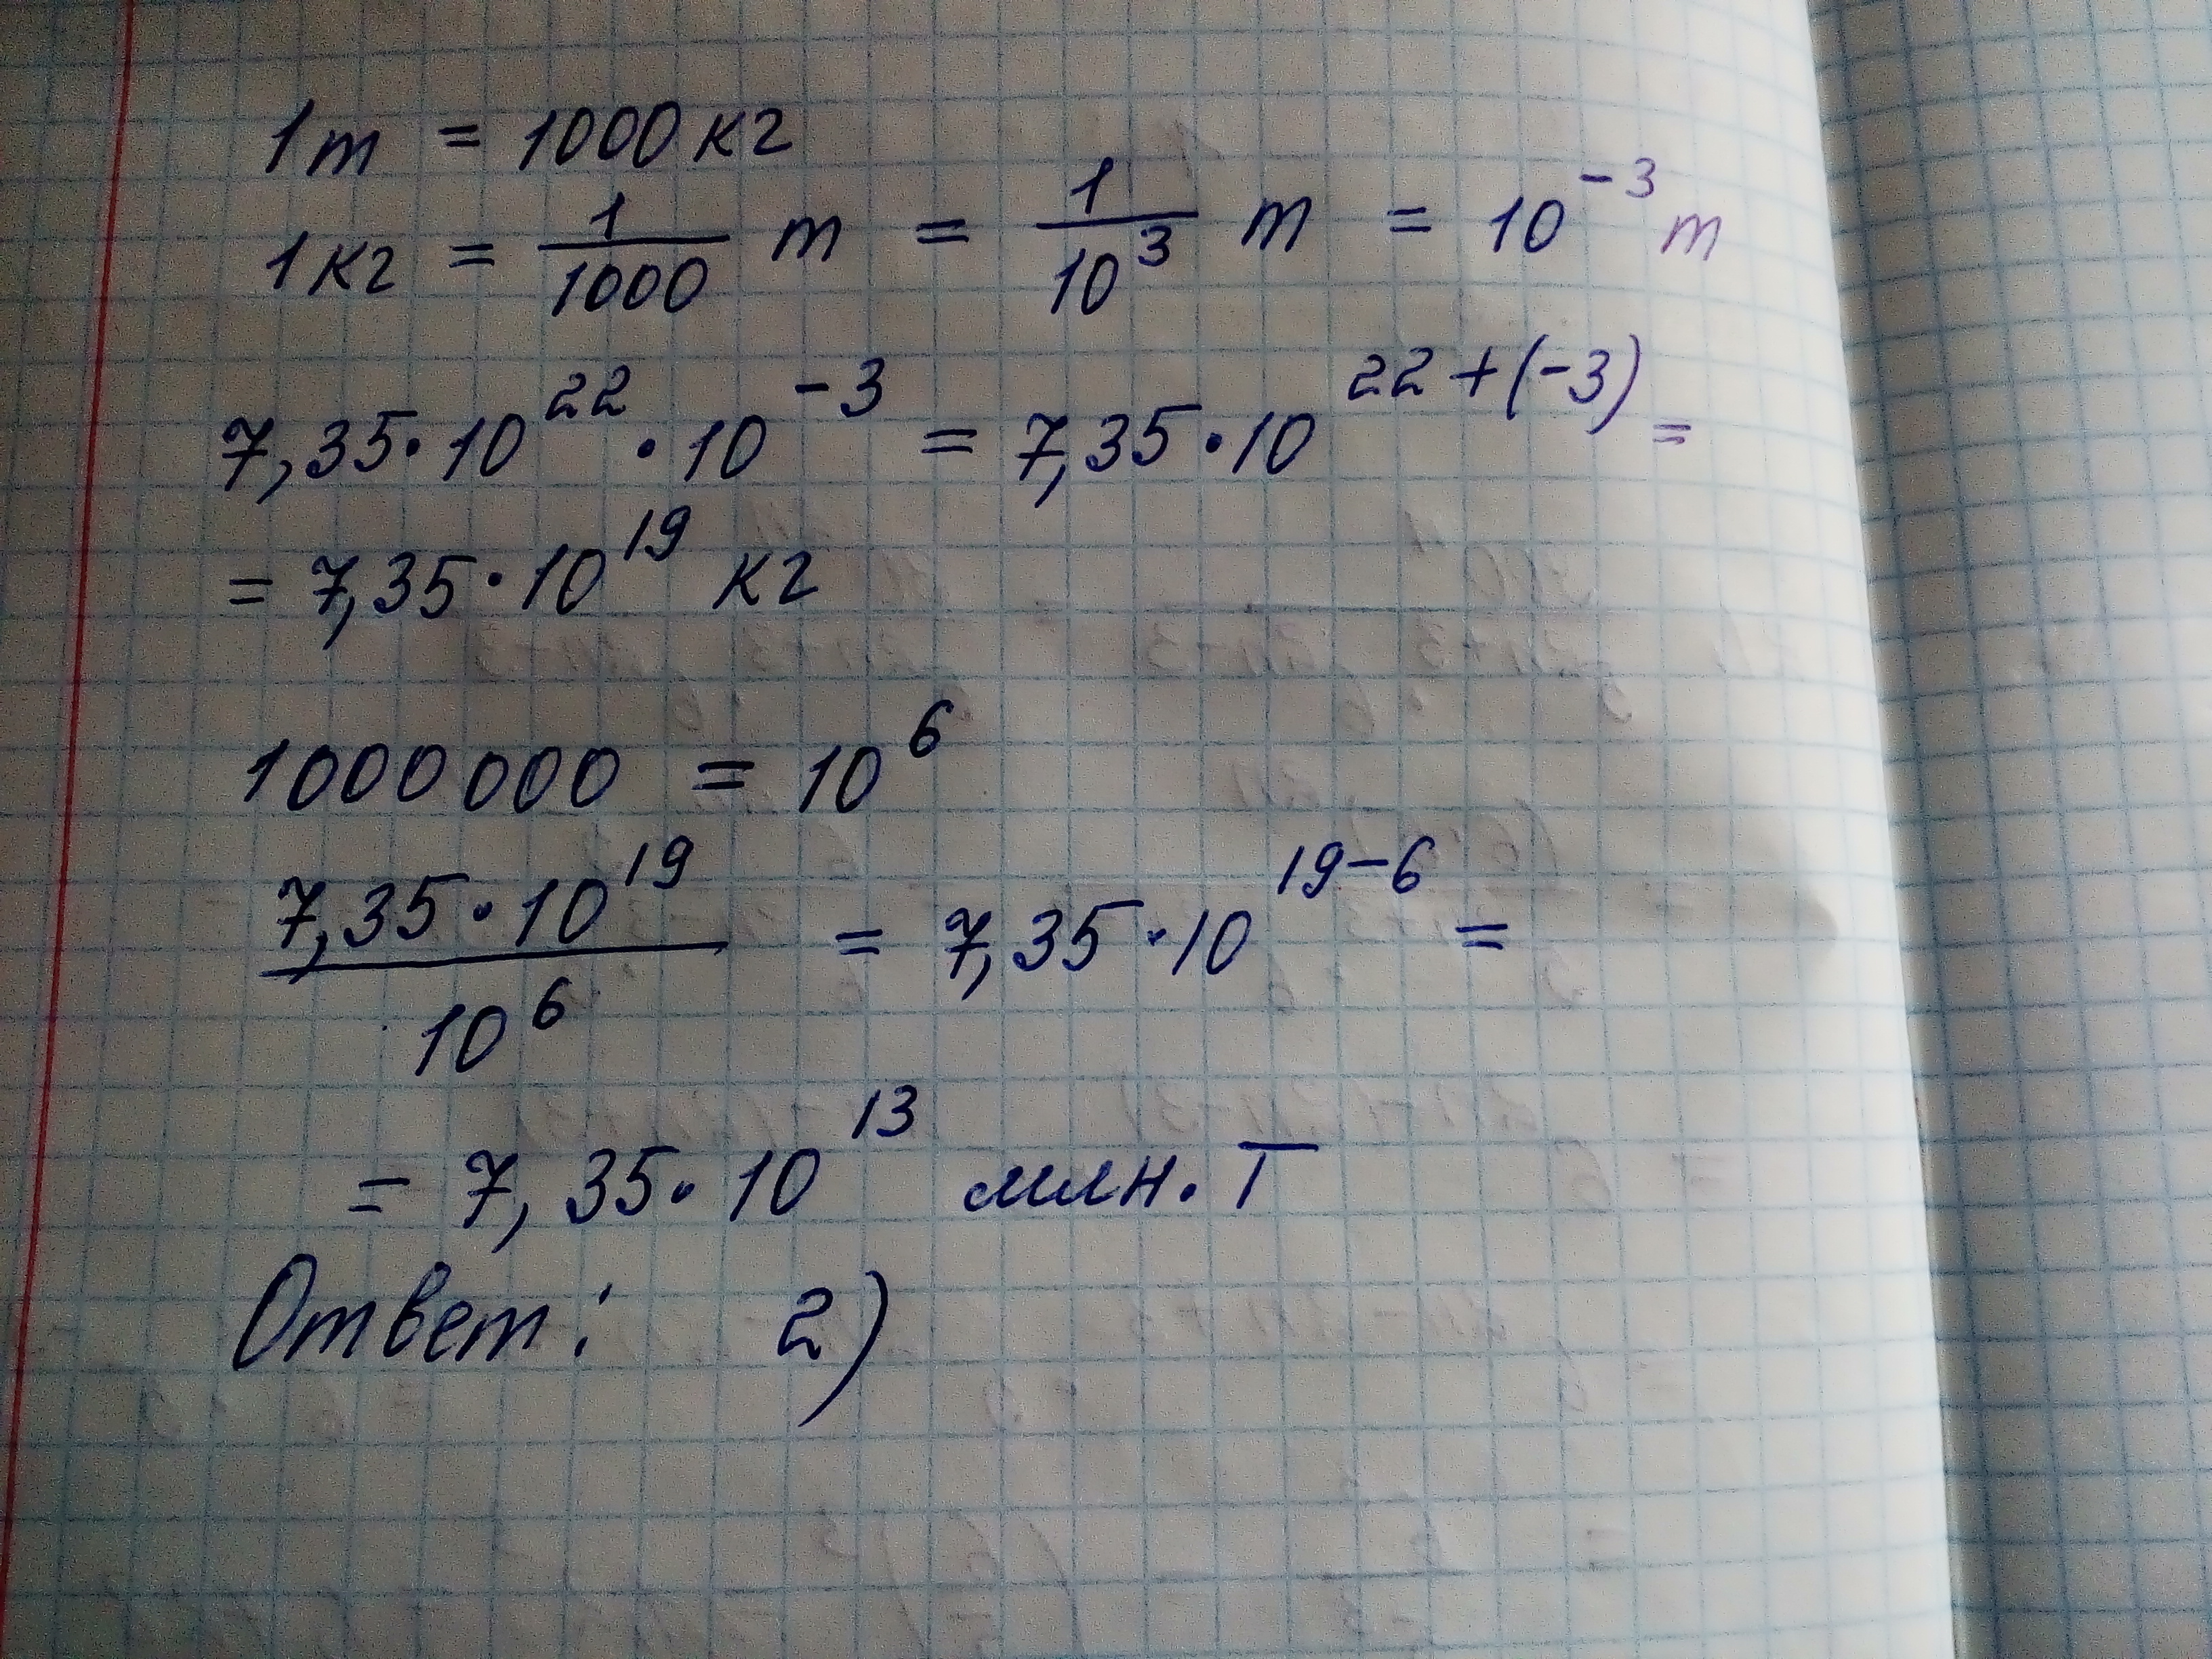 1т = 1000 кг
1 кг = 1/1000 т = 1/10³ т = 10⁻³ т
7,35·10²² · 10⁻³ = 7,35·10²²⁺⁽⁻³⁾ =
= 7,35·10¹⁹ кг
1000 000 = 10⁶
7,35·10¹⁹/10⁶ = 7,35·10¹⁹⁻⁶ =
= 7,35·10¹³ млн. Т
Ответ: 2)